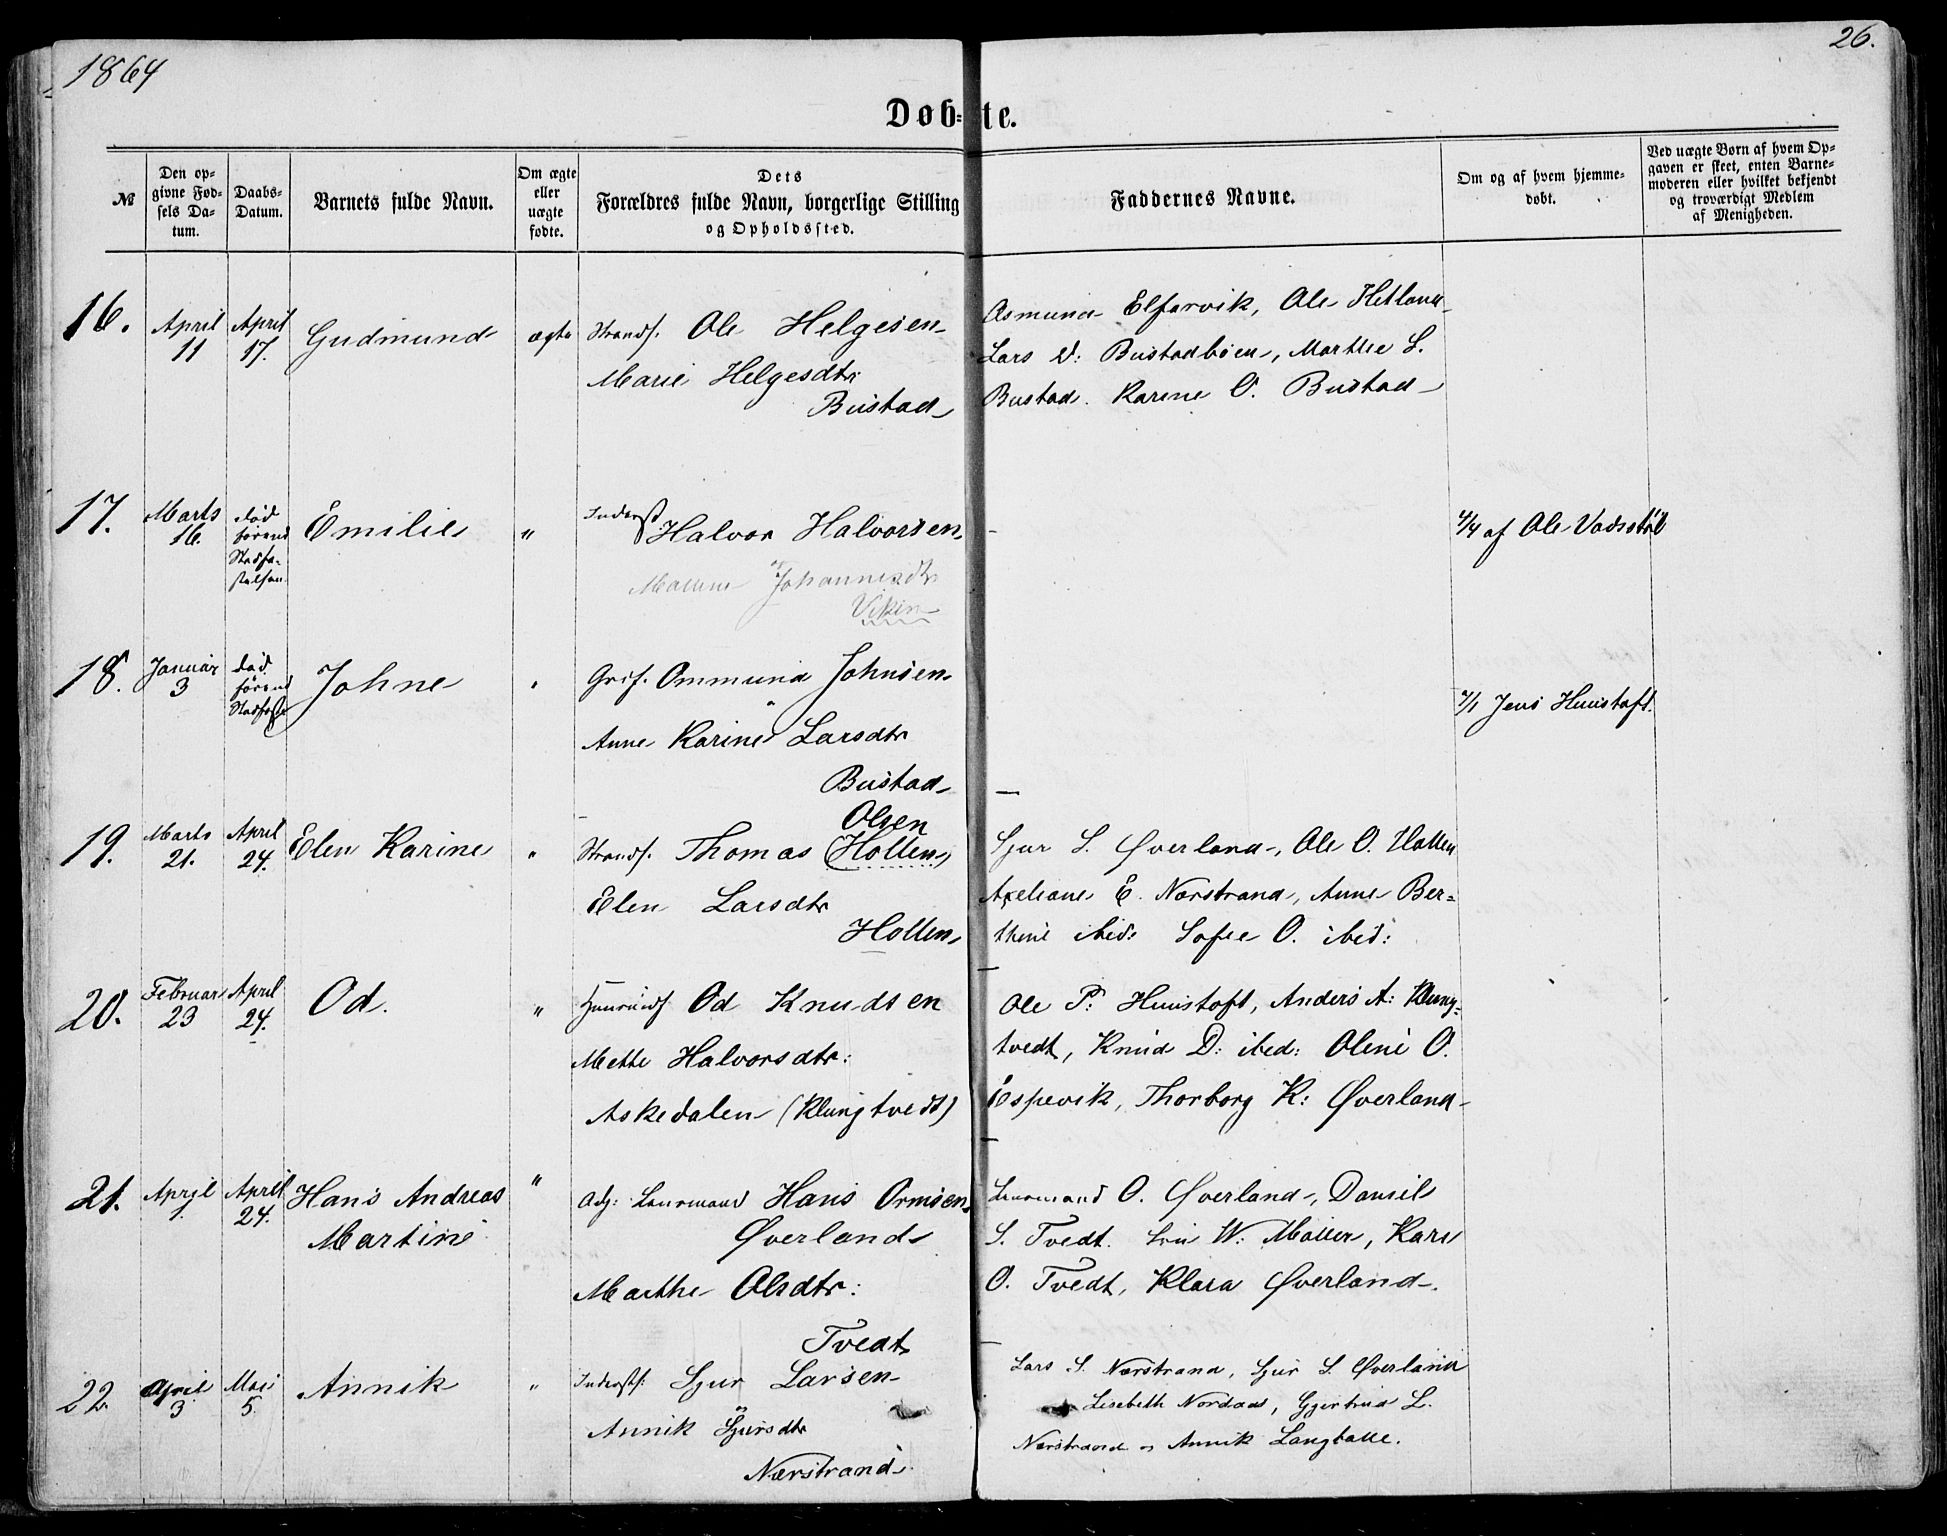 1864
26.
Døb-te.
№
Den op-
givne Fød-
sels Da-
tum.
Daabs-
Datum.
Barnets fulde Navn.
Om ægte
eller
uægte
fødte.
Dets
Forældres fulde Navn, borgerlige Stilling
og Opholdssted.
Faddernes Navne.
Om og af hvem hjemme-
døbt.
Ved uægte Børn af hvem Op-
gaven er skeet, enten Barne-
moderen eller hvilket bekjendt
og troværdigt Medlem
af Menigheden.
16.
April
11
April
17.
Gudmund
ægte
Strands. Ole Helgesen
Marie Helgesdtr
Bustad
Asmund Elfarvik, Ole Hetland
Lars V: Bustadbøen, Marthe L.
Bustad. Karine O. Bustad
17.
Marts
16.
død
førend
Stadfæ-
stelsen
Emilie
"
Inderst Halvor Halvorsen
Malene Johannesdtr
Vikin
4/4 af Ole Vadsstøl
18.
Januar
3
død
førend
Stadfæste
Johne
"
Grif. Ommund Johnsen
Anne Karine Larsdtr
Bustad
7/1 Jens Huustoft.
19.
Marts
21.
April
24.
Elen Karine
"
Olsen
Strands. Thomas (Hollen)
Elen Larsdtr
Hollen
Sjur S. Øverland, Ole O. Hollen
Axeliane E. Nærstrand, Anne Ber=
thine ibid: Sofie O. ibid:
20.
Februar
23
April
24.
Od.
"
Huusmds. Od Knudsen
Mette Halvorsdtr:
Askedalen (Klungtvedt)
Ole P: Huustoft, Anders A: Klung=
tvedt, Knud D: ibid: Oline O.
Espevik, Thorborg K: Øverland
21.
April
1.
April
24.
Hans Andreas
Martine
"
Adj: Lensmand Hans Ormsen
Øverland
Marthe Olsdtr:
Tvedt
Lensmand O. Øverland, Daniel
S. Tvedt. Fru W: Møller, Kari
O. Tvedt, Klara Øverland.
22.
April
3
Mai
5.
Annik
"
Inderst. Sjur Larsen
Annik Sjursdtr
Nærstrand
Lars S. Nærstrand, Sjur S. Øverland
Lisebeth Nordaas, Gjertrud L.
Nærstrand og Annik Langballe.